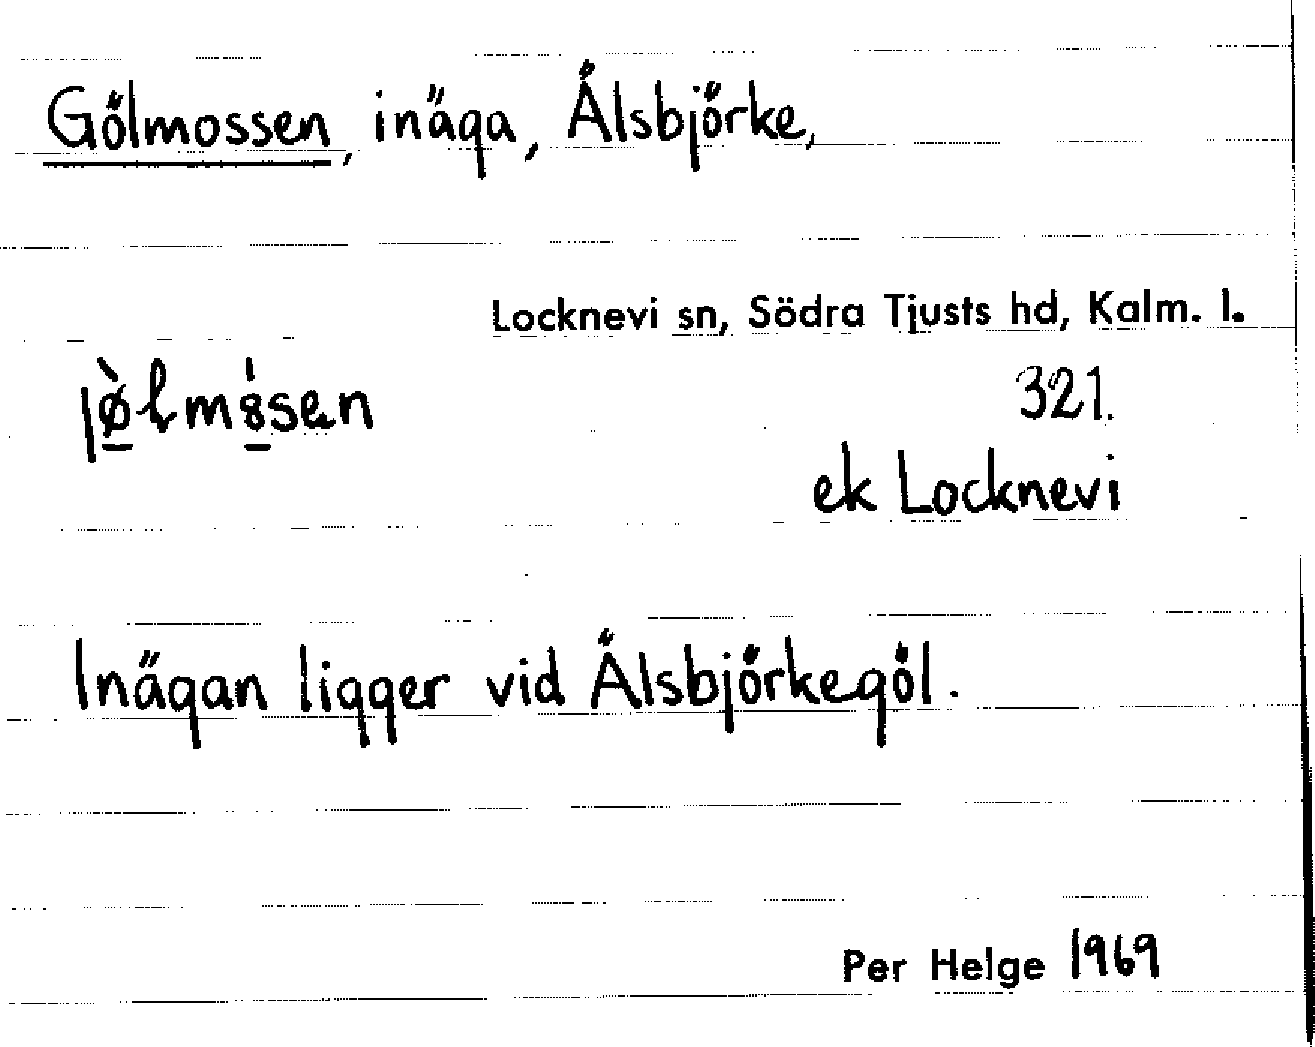 Gölmossen, inäga, Ålsbjörke,
Locknevi sn, Södra Tjusts hd, Kalm. l.
321.
ek Locknevi
Inägan ligger vid Ålsbjörkegöl.
Per Helge 1969